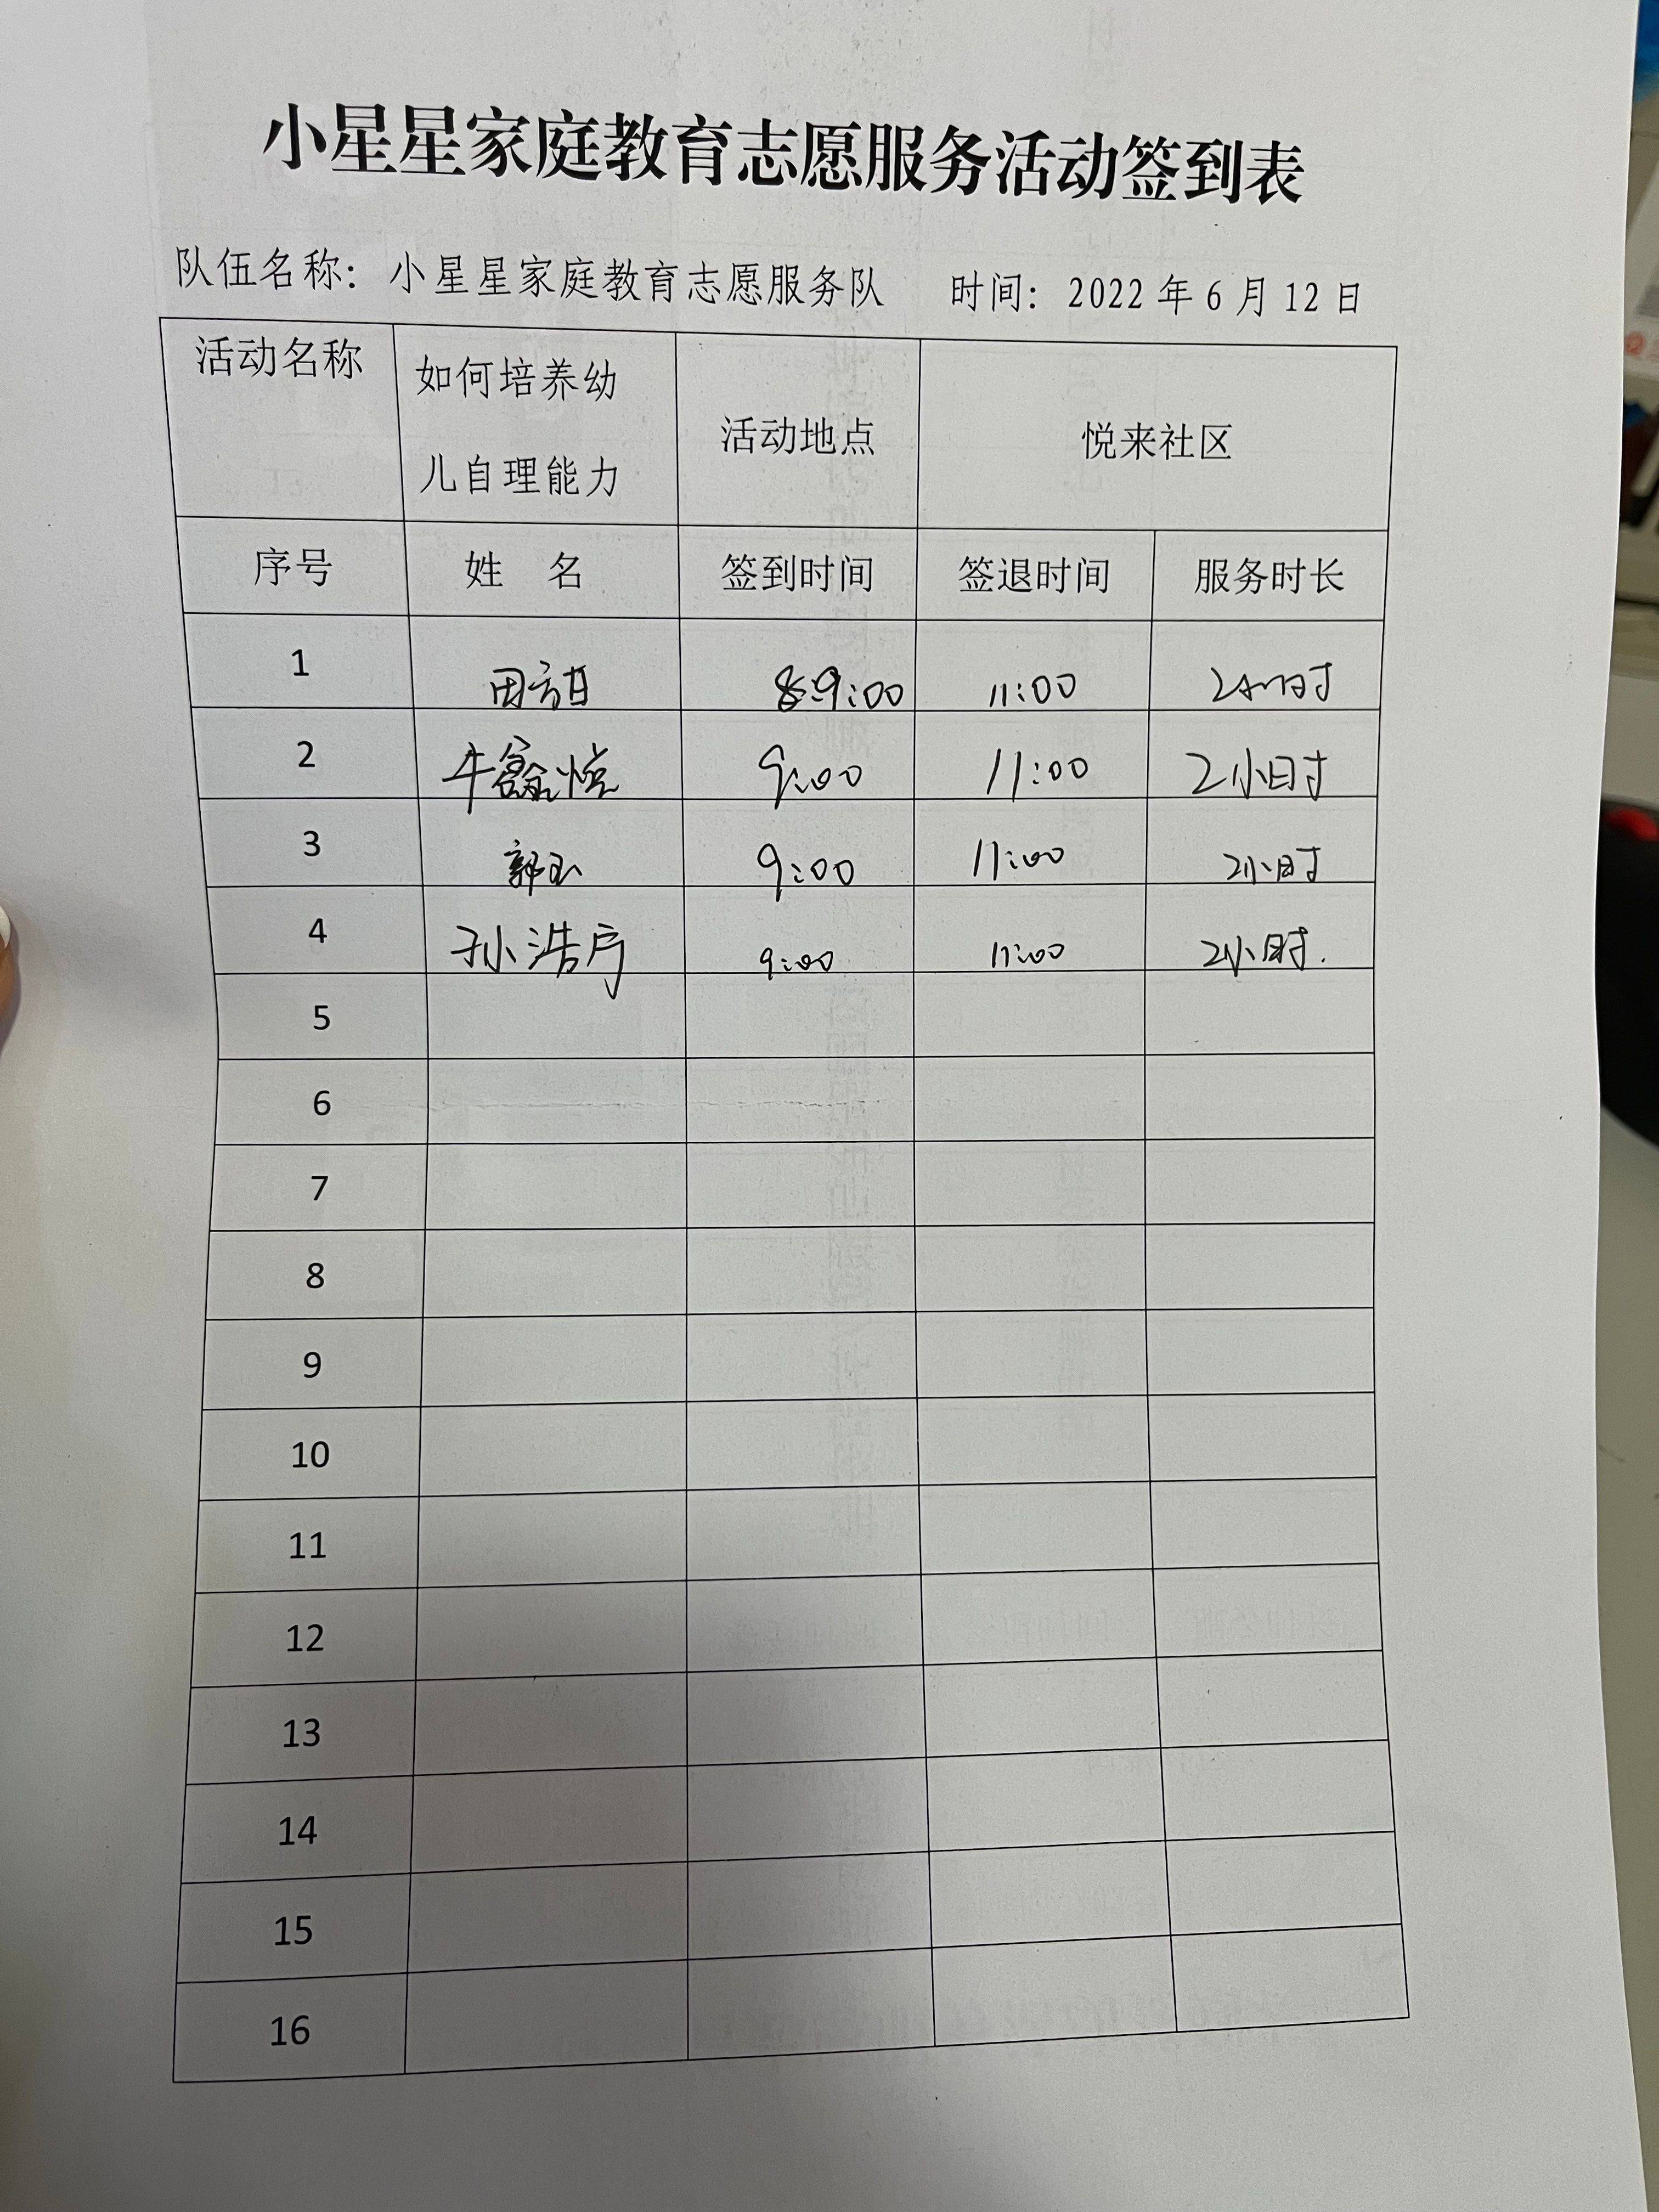 小星星家庭教育志愿服务活动签到表
队伍名称：小星星家庭教育志愿服务队 时间：2022年6月12日
活动名称 如何培养幼儿自理能力 活动地点 悦来社区
序号 姓 名 签到时间 签退时间 服务时长
1 9:00 11:00 2小时
2 牛鑫悦 9:00 11:00 2小时
3 郭玉 9:00 11:00 2小时
4 孙浩宇 9:00 11:00 2小时.
5
6
7
8
9
10
11
12
13
14
15
16